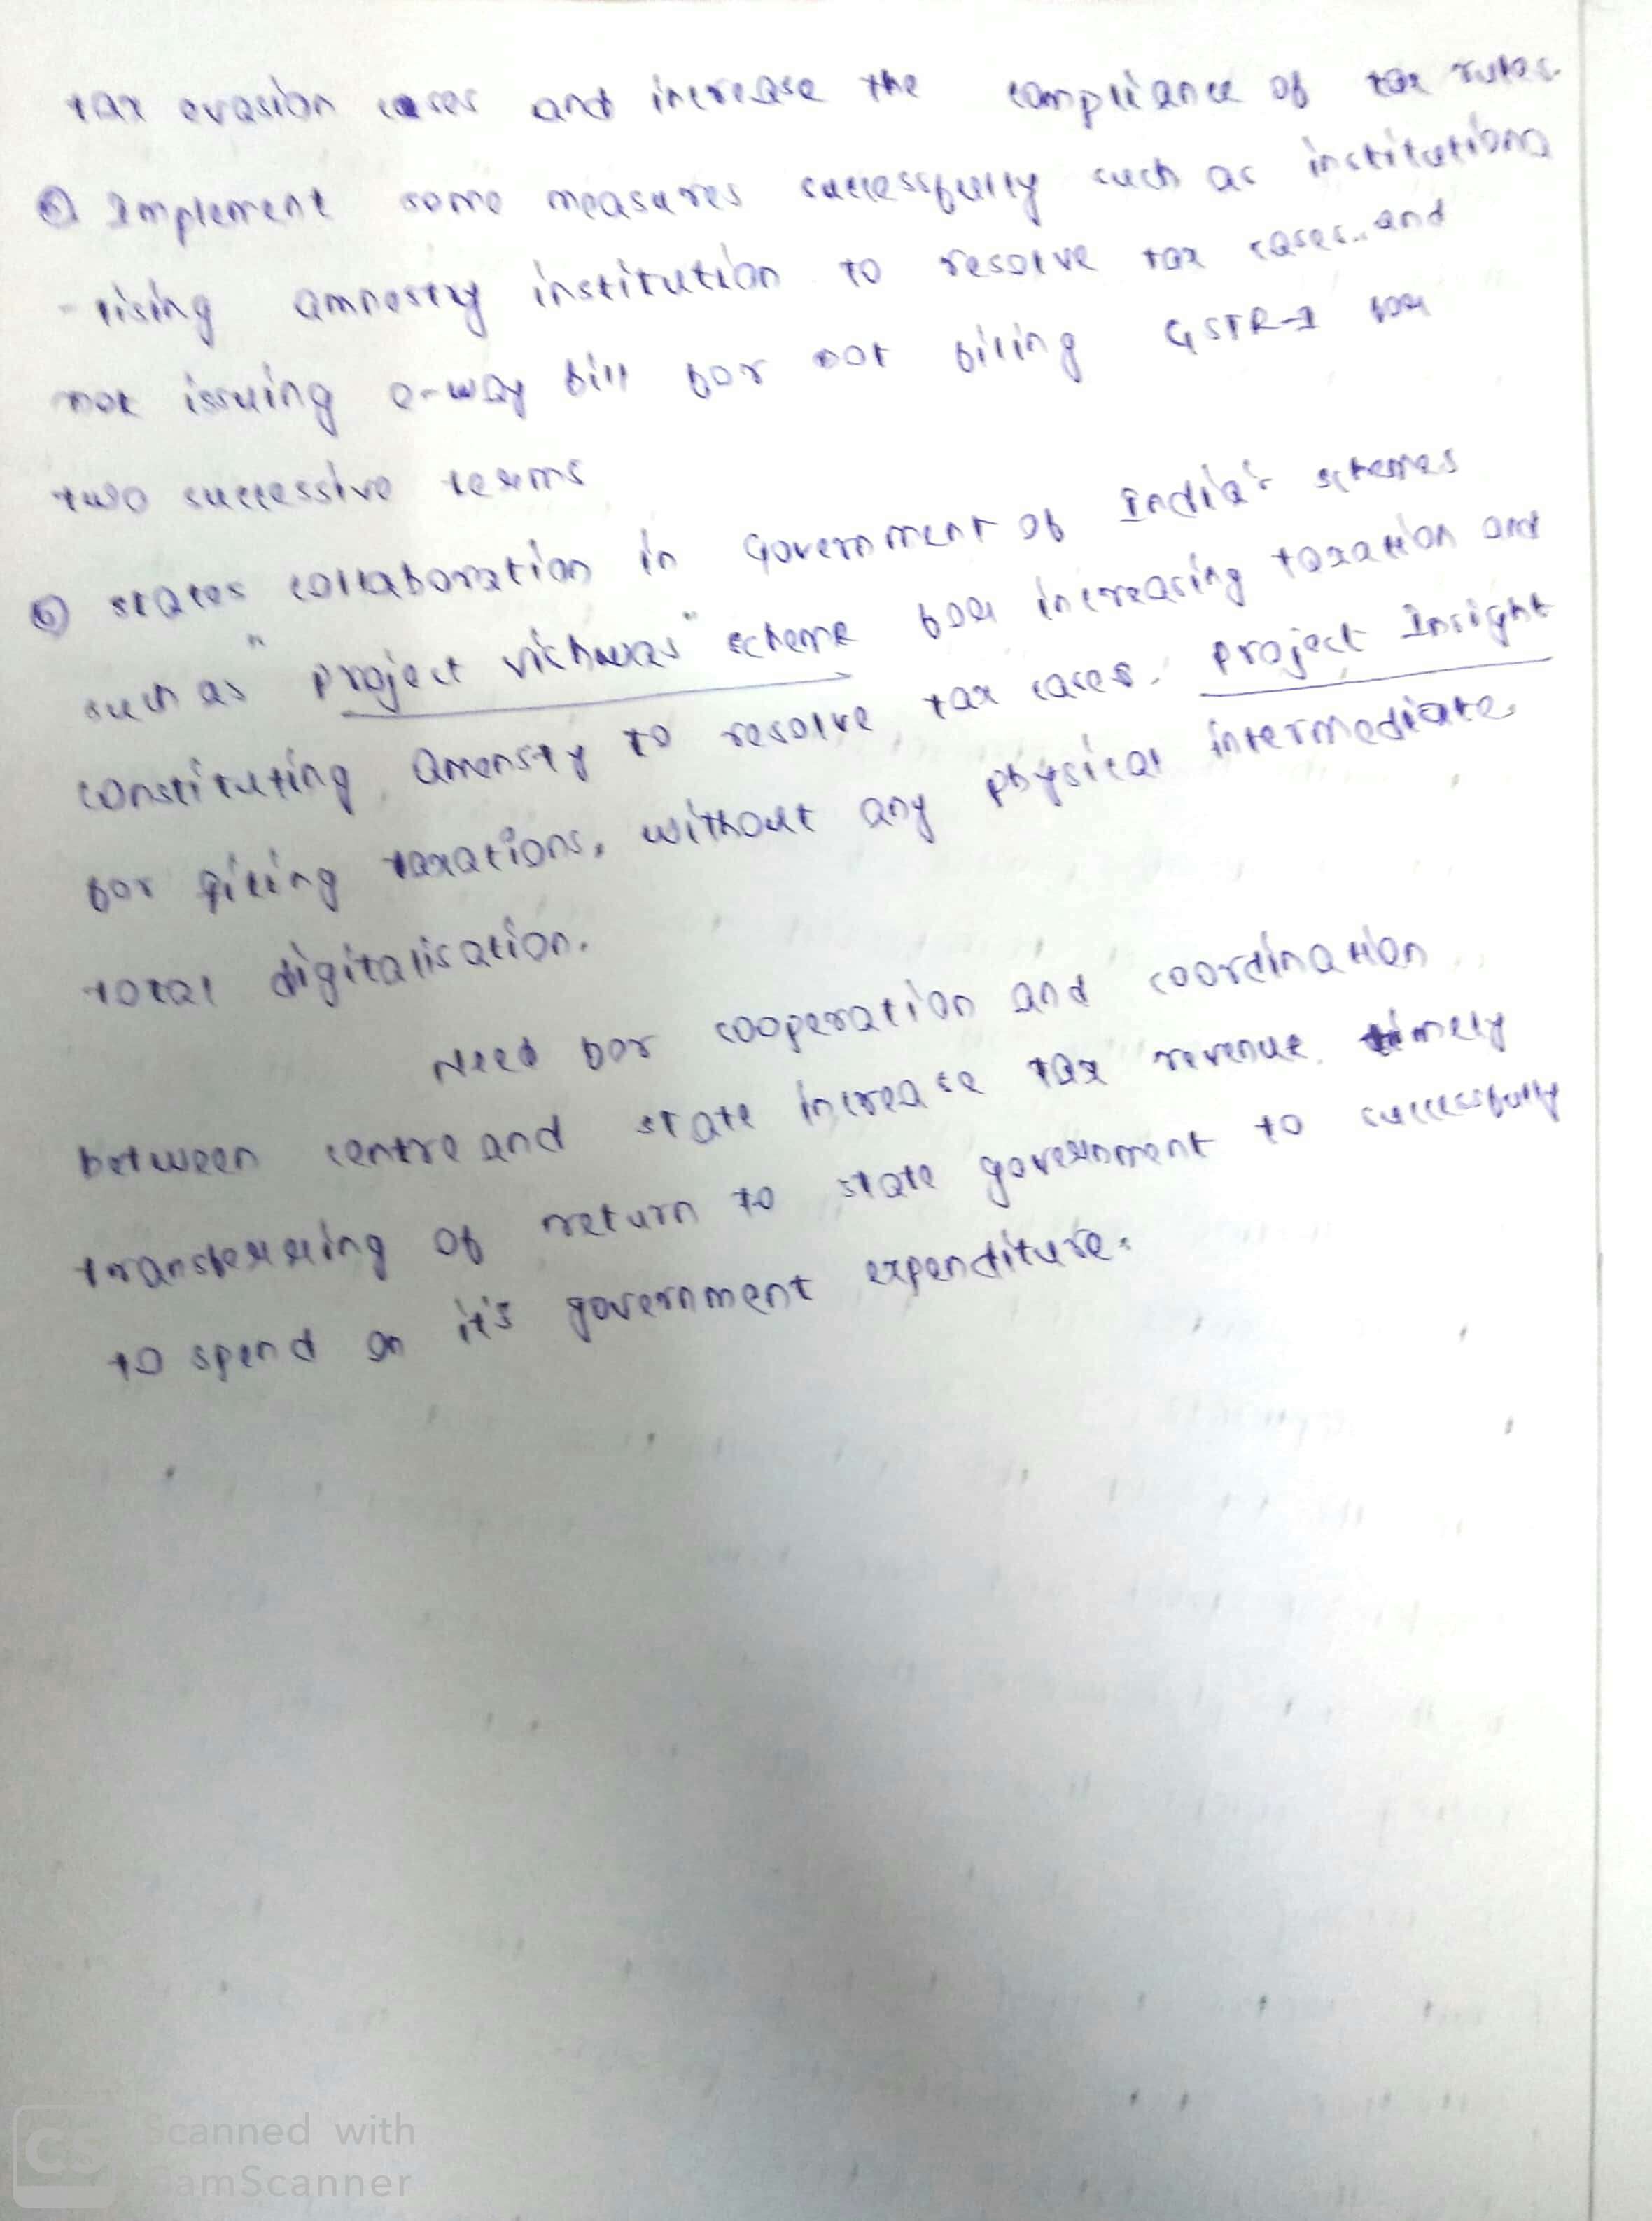 tax evasion cases and increase the compliance of tax rules.
⑤ Implement some measures successfully such as institutiona
-lising amnestry institution to resolve tax cases.. and
not issuing e-way bill for not filing GSTR-1 for
two successive terms
⑥ states collaboration in Government of India's schemes
such as "project vishwas" scheme for increasing taxation and
constituting amensty to resolve tax cases. project Insight
for filing taxations, without any physical intermediate.
total digitalisation.
Need for cooperation and coordination
between centre and state increase tax revenue. timely
transferring of return to state government to successfully
to spend on it's government expenditure.
CS Scanned with
CamScanner